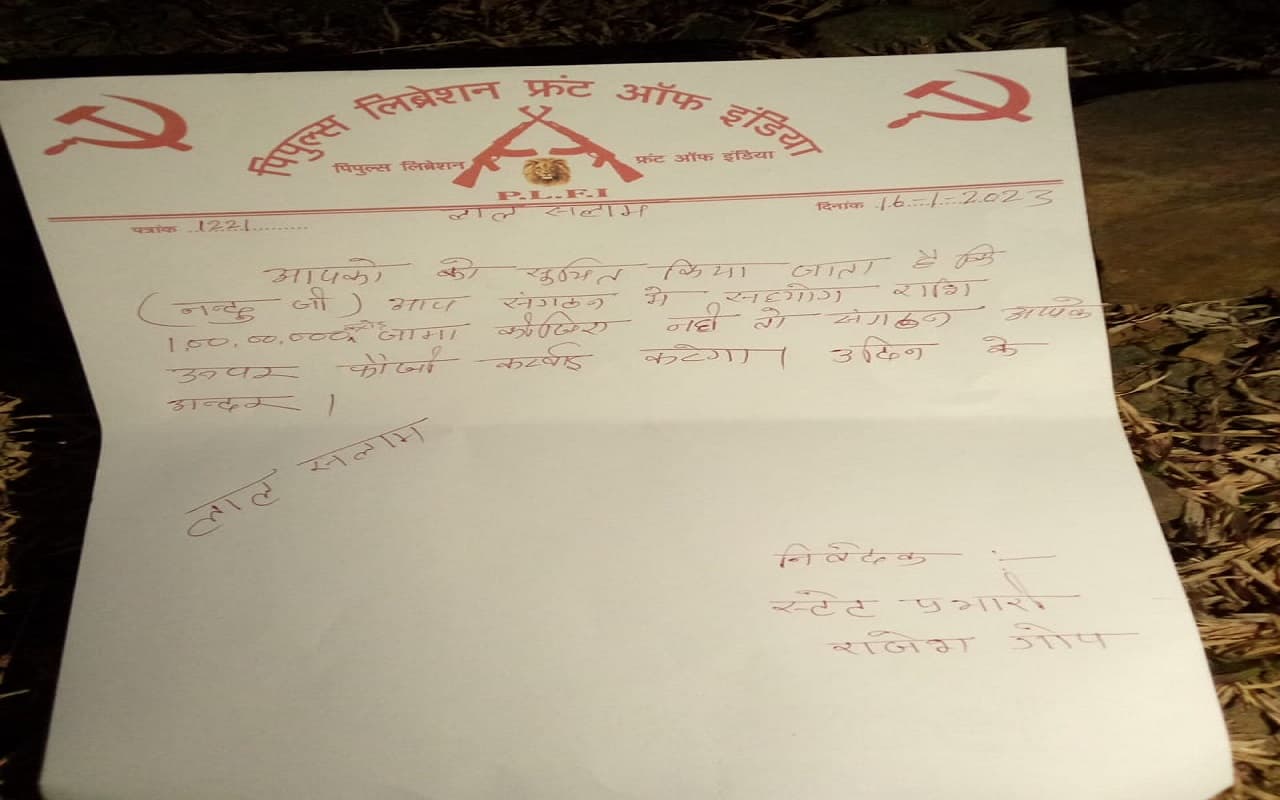 पिपुल्स लिब्रेशन फ्रंट ऑफ इंडिया
पिपुल्स लिब्रेशन फ्रंट ऑफ इंडिया
P.L.F.I
लाल सलाम
पत्रांक 1221 दिनांक 16-1-2023
आपको को सुचित किया जाता है कि
(नन्दकु जी) आप संगठन मे सहयोग राशि
1,00,00,000 करोड़ जामा कीजिए नही तो संगठन आपके
ऊपर फौजी करवाई करेगा। 3 दिन के
अन्दर।
लाल सलाम
निवेदक :-
स्टेट प्रभारी
राजेश गोप